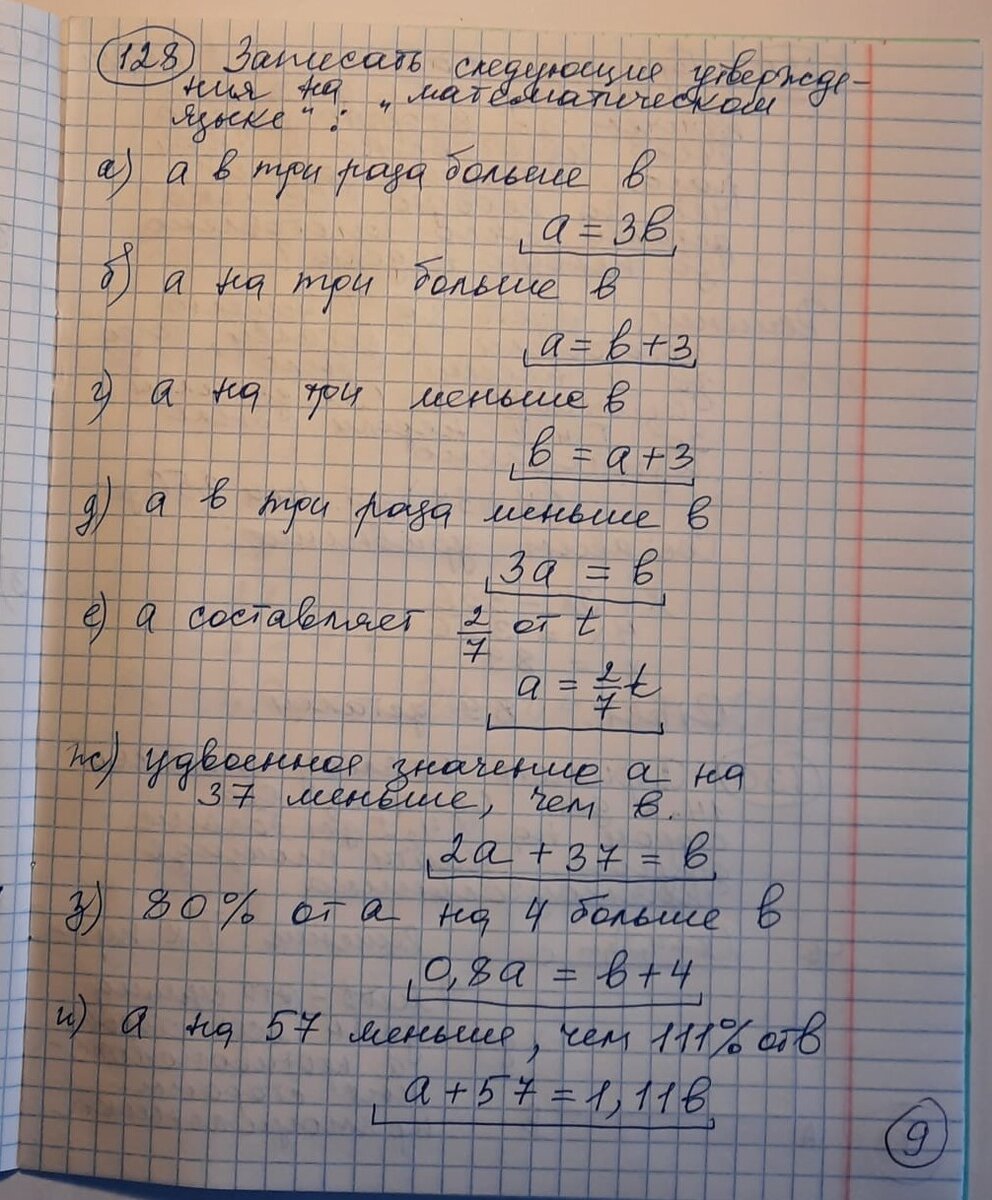 128 Записать следующие утвержде-
ния на „математическом
языке":
а) а в три раза больше в
а = 3в
б) а на три больше в
а = в + 3
г) а на три меньше в
в = а + 3
д) а в три раза меньше в
3а = в
е) а составляет 2/7 от t
а = 2/7 t
ж) удвоенное значение а на
37 меньше, чем в.
2а + 37 = в
з) 80% от а на 4 больше в
0,8а = в + 4
и) а на 57 меньше, чем 111% от в
а + 57 = 1,11в
9